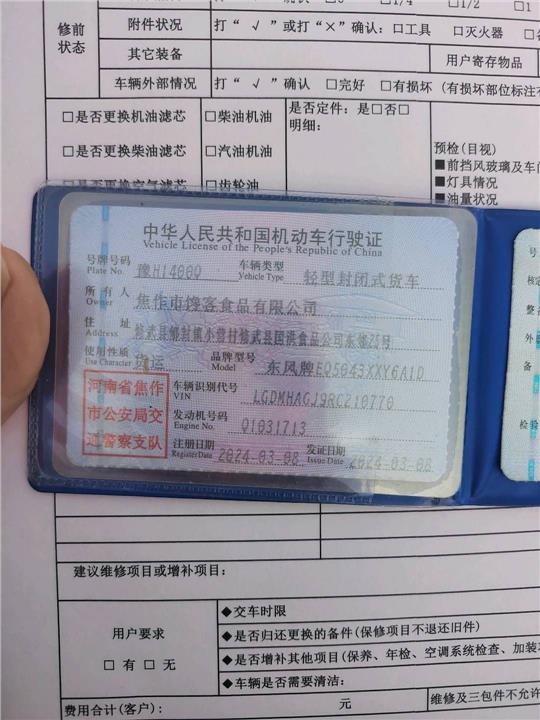 修前
状态
附件状况
打“√”或打“×”确认：□工具 □灭火器
其它装备
用户寄存物品
车辆外部情况
打“√”确认 □完好 □有损坏（有损坏部位标注
□是否更换机油滤芯 □柴油机油
是否定件：是□否□
明细：
□是否更换柴油滤芯 □汽油机油
□是否更换空气滤芯 □齿轮油
预检(目视)
■前挡风玻璃及车门
■灯具情况
■油量状况
中华人民共和国机动车行驶证
Vehicle License of the People's Republic of China
号牌号码
Plate No.
豫H1400Q
车辆类型
Vehicle Type
轻型封闭式货车
所有人
Owner
焦作市馋客食品有限公司
住址
Address
使用性质
Use Character
货运
品牌型号
Model
东风牌EQ5043XXY6A1D
河南省焦作
市公安局交
通警察支队
车辆识别代号
VIN
LGDMHAGJ9RC210770
发动机号码
Engine No.
Q1031713
注册日期
Register Date
2024-03-08
发证日期
Issue Date
2024-03-08
建议维修项目或增补项目：
用户要求
□有 □无
◆交车时限
◆是否归还更换的备件(保修项目不退还旧件)
◆是否增补其他项目(保养、年检、空调系统检查、加装
◆车辆是否需要清洁：
费用合计(客户)：
元
维修及三包件不允许